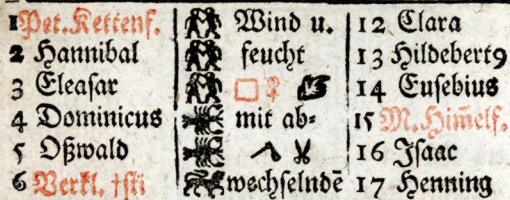 1 Pet. Kettenf. Wind u. 12 Clara
2 Hannibal feucht 13 Hildebert9
3 Eleasar □ ♀ 14 Eusebius
4 Dominicus mit ab= 15 M. Him̃elf.
5 Oßwald 16 Isaac
6 Verkl. wechselndē 17 Henning